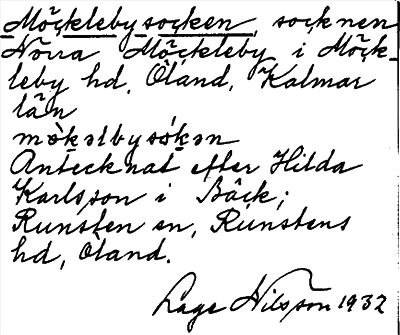 Möckleby socken, socknen
Norra Möckleby i Möck-
leby hd, Öland, Kalmar
län
mökəlbysókən
Antecknat efter Hilda
Karlsson i Bäck;
Runsten sn, Runstens
hd, Öland.
Lage Nilsson 1932